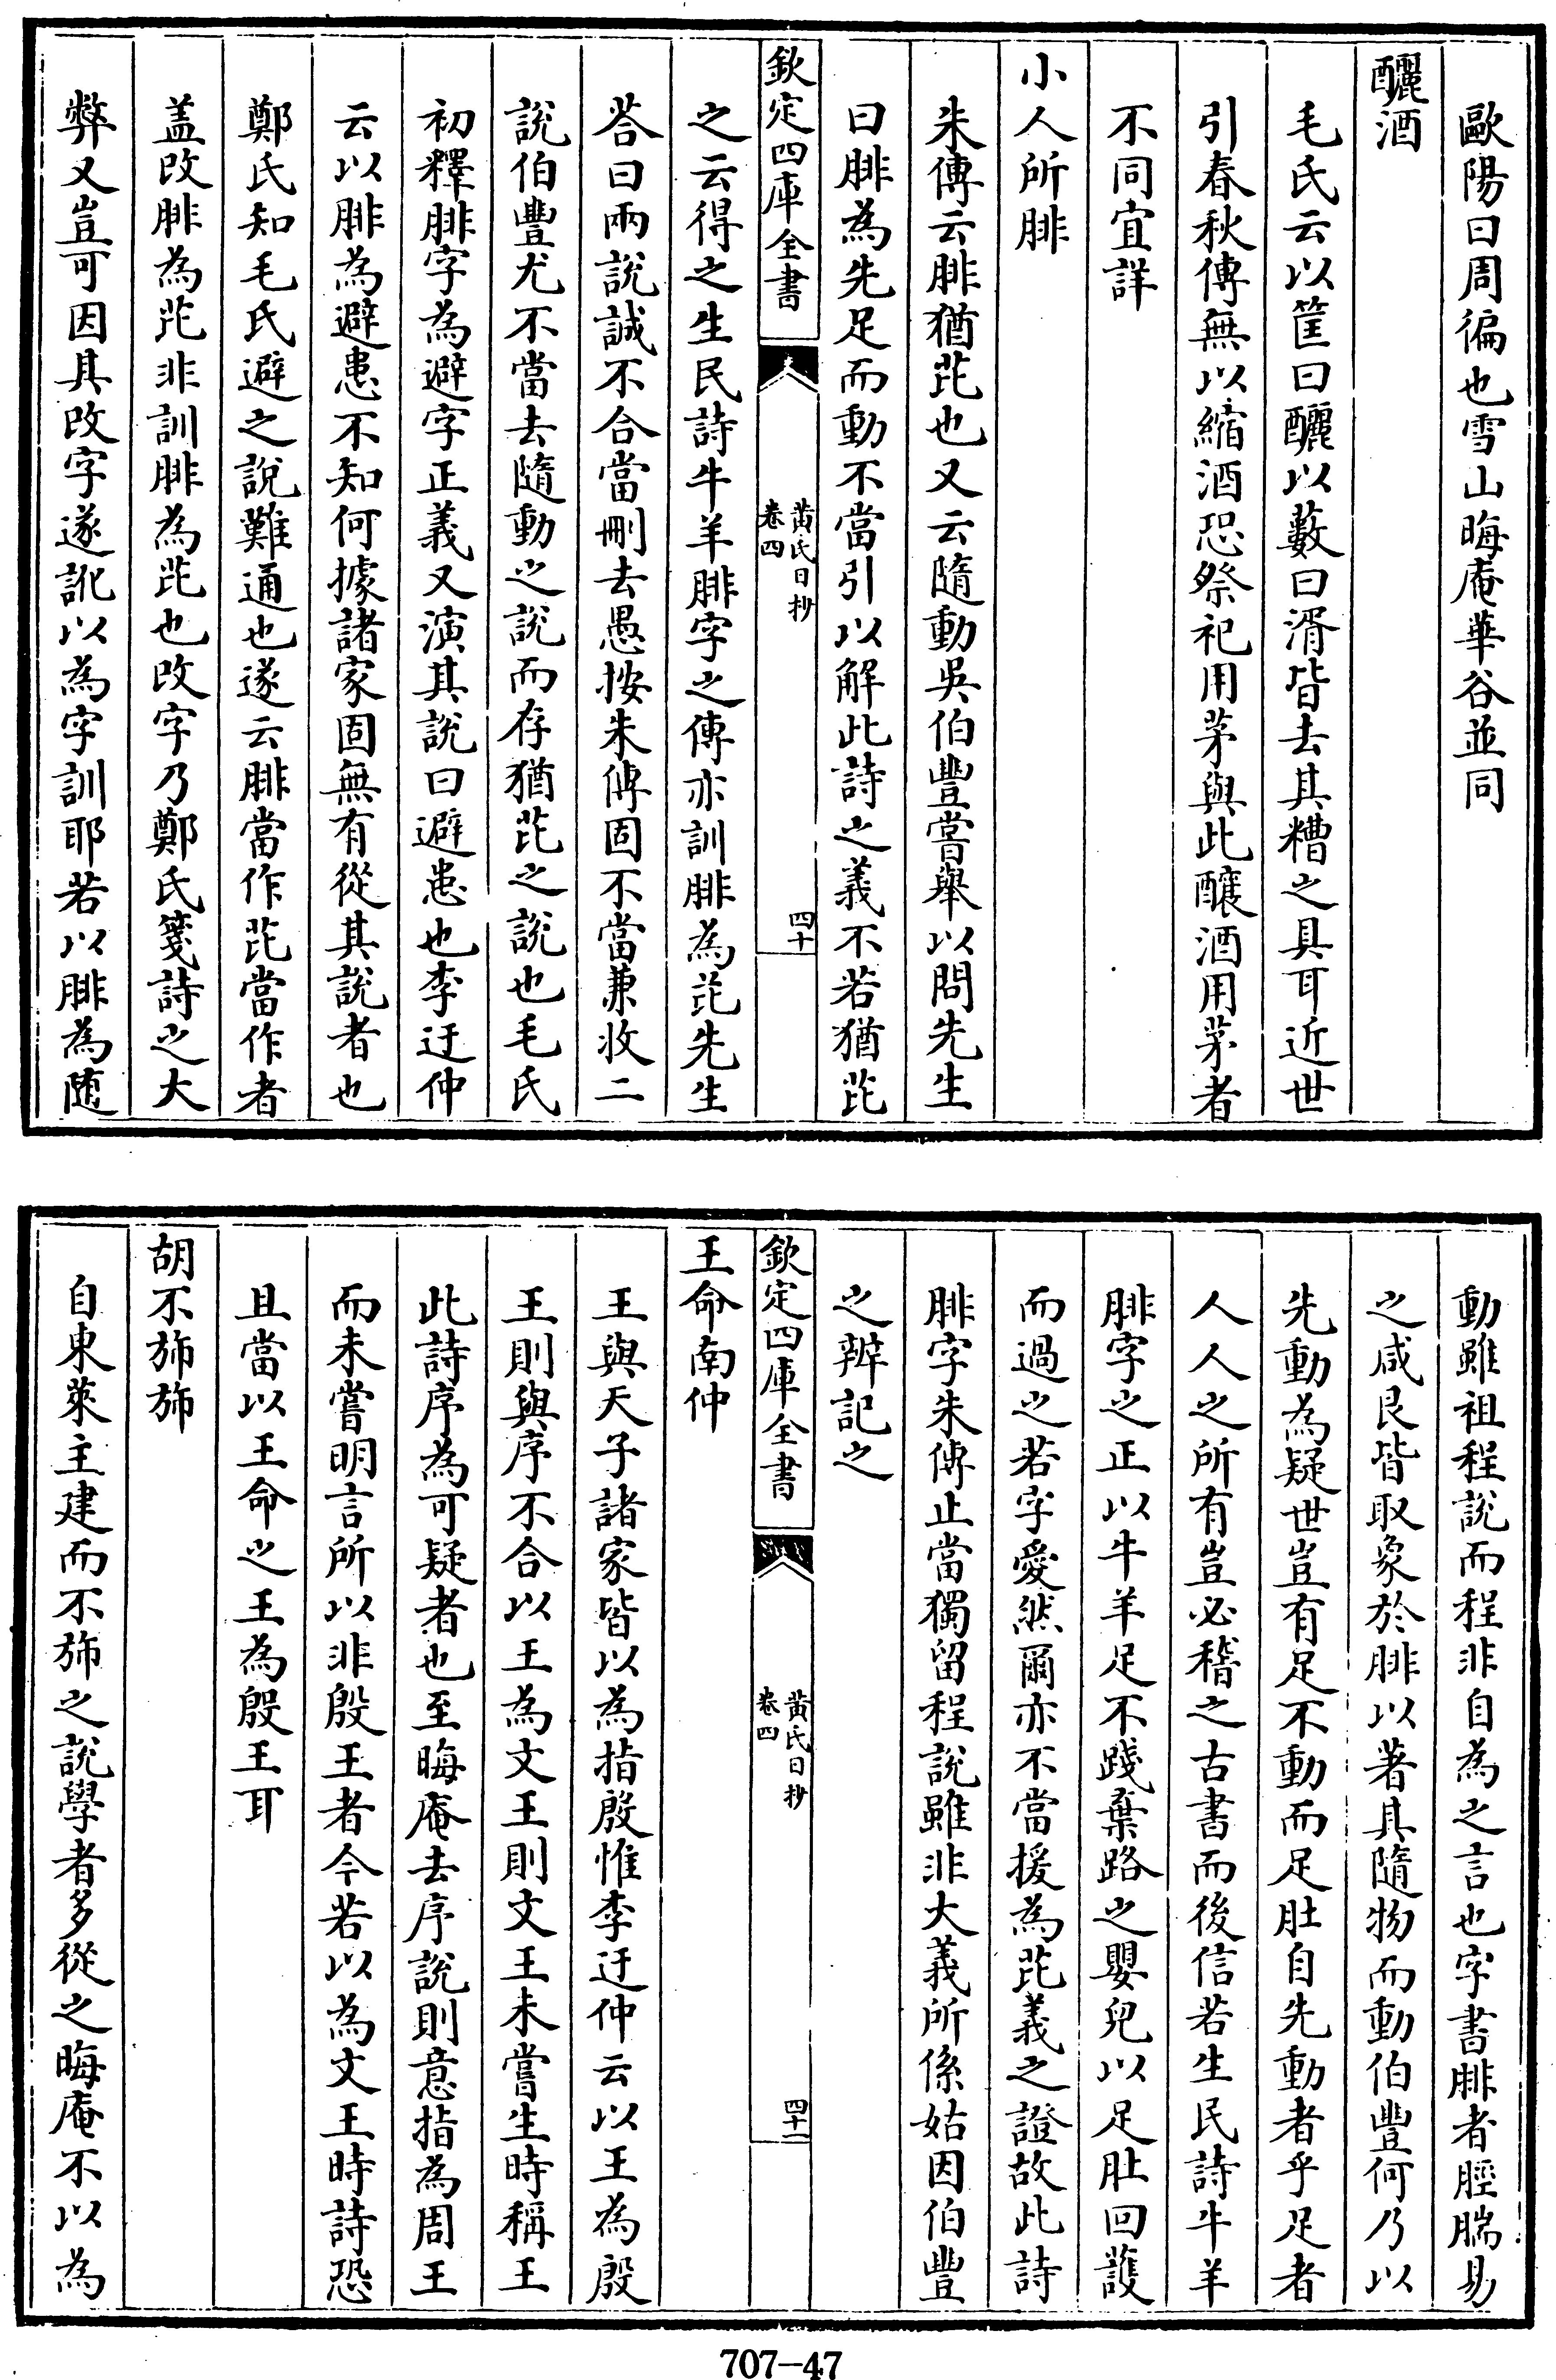 歐陽曰周徧也雪山晦庵華谷並同
釃酒
毛氏云以筐曰釃以藪曰湑皆去其糟之具耳近世
引春秋傳無以縮酒恐祭祀用茅與此釀酒用茅者
不同宜詳
小人所腓
朱傳云腓猶芘也又云隨動吳伯豐嘗舉以問先生
曰腓為先足而動不當引以解此詩之義不若猶芘
欽定四庫全書
黃氏日抄
卷四
四十
之云得之生民詩牛羊腓字之傳亦訓腓為芘先生
荅曰兩說誠不合當刪去愚按朱傳固不當兼收二
說伯豐尤不當去隨動之說而存猶芘之說也毛氏
初釋腓字為避字正義又演其說曰避患也李迂仲
云以腓為避患不知何據諸家固無有從其說者也
鄭氏知毛氏避之說難通也遂云腓當作芘當作者
盖改腓為芘非訓腓為芘也改字乃鄭氏箋詩之大
弊又豈可因其改字遂訛以為字訓耶若以腓為随
動雖祖程說而程非自為之言也字書腓者脛腨易
之咸艮皆取象於腓以著其隨物而動伯豐何乃以
先動為疑世豈有足不動而足肚自先動者乎足者
人人之所有豈必稽之古書而後信若生民詩牛羊
腓字之正以牛羊足不踐棄路之嬰兒以足肚回護
而過之若字愛然爾亦不當援為芘義之證故此詩
腓字朱傳止當獨留程說雖非大義所係姑因伯豐
之辨記之
欽定四庫全書
黃氏日抄
卷四
四十一
王命南仲
王與天子諸家皆以為指殷惟李迂仲云以王為殷
王則與序不合以王為文王則文王未嘗生時稱王
此詩序為可疑者也至晦庵去序說則意指為周王
而未嘗明言所以非殷王者今若以為文王時詩恐
且當以王命之王為殷王耳
胡不斾斾
自東萊主建而不斾之說學者多從之晦庵不以為
707-47